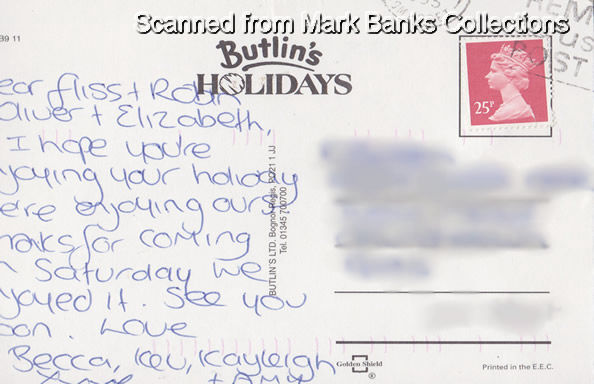 Scanned from Mark Banks Collections
B9 11
Butlin's
HOLIDAYS
25P
POST
ear fliss + Robin
Oliver + Elizabeth,
I hope you're
joying your holiday
ere enjoying ours
hanks for coming
n Saturday we
joyed it. See you
oon. Love
Becca, Kev, Kayleigh
+ Amy
BUTLIN'S LTD. Bognor Regis, PO21 1JJ
Tel. 01345 700700
Golden Shield
®
Printed in the E.E.C.